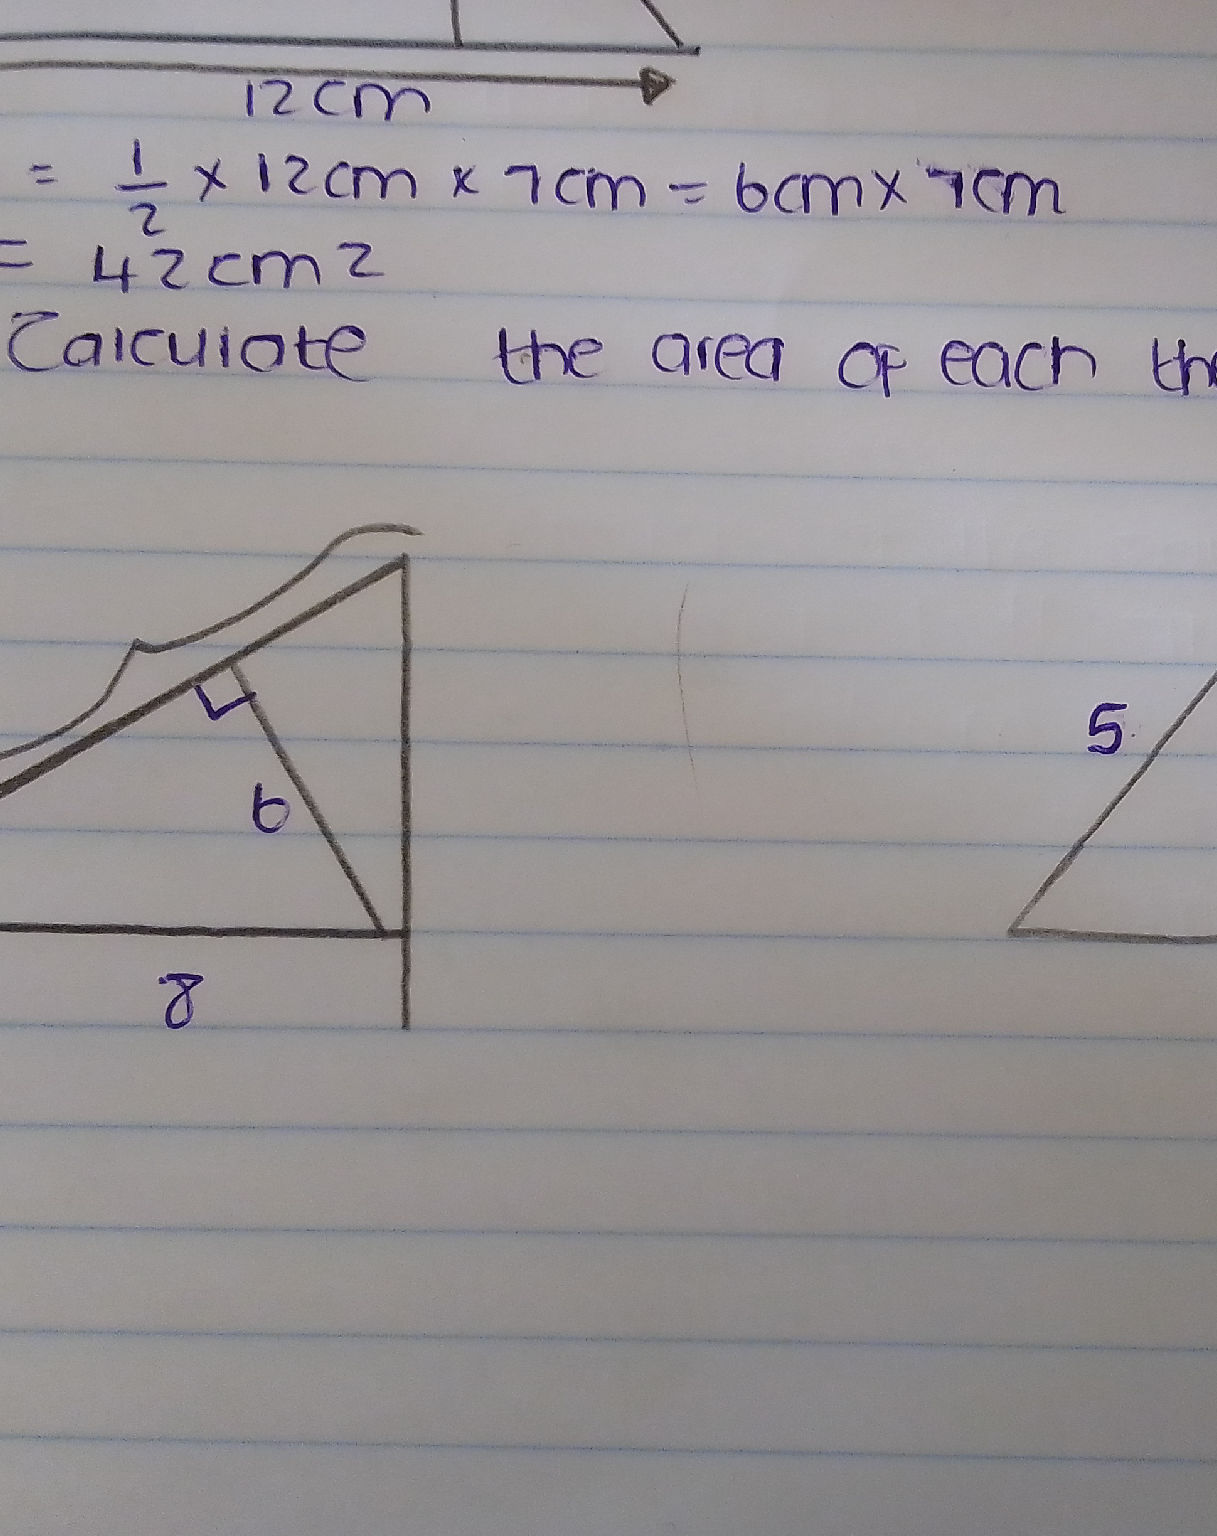 12cm
= 1/2 x 12cm x 7cm = 6cm x 7cm
= 42cm2
Calculate the area of each
5
6
8